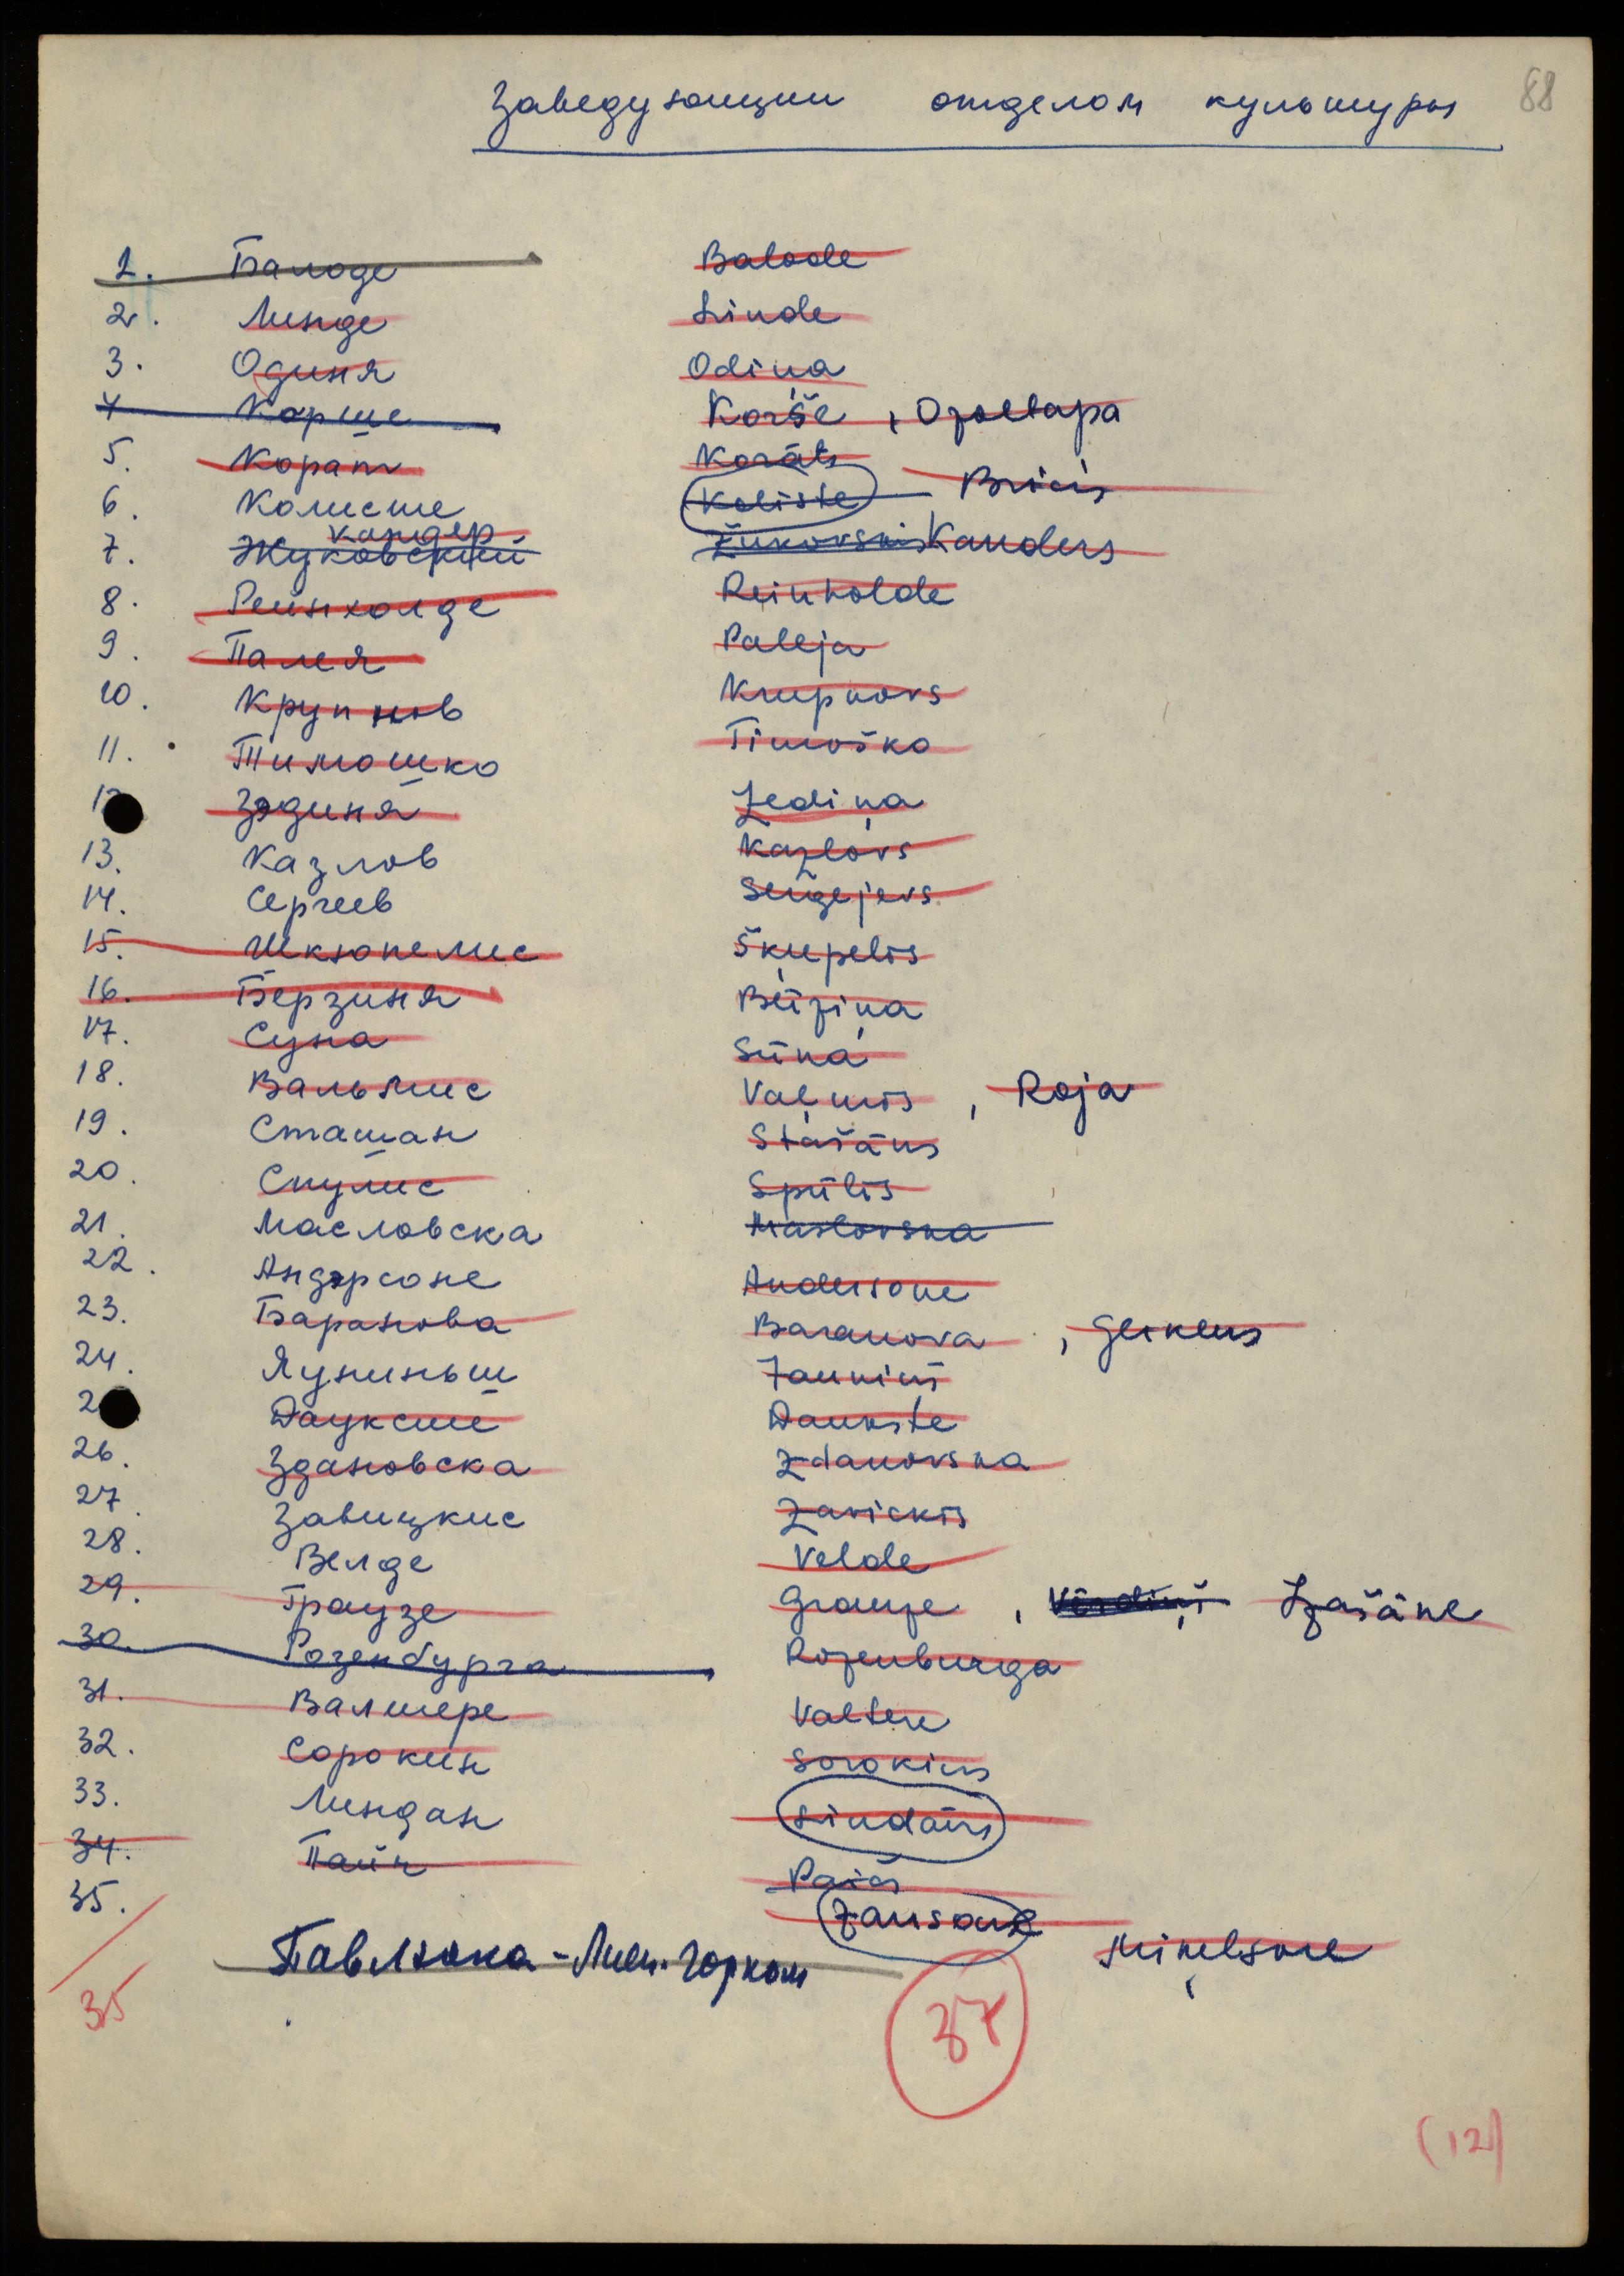 88
Заведующии отделом культуры
1. Балоде Balode
2. Линде Linde
3. Одиня Odiņa
4 Карше Korše, Озолзара
5. Корат Korāts
6. Колисте Koliste Bricis
7. Жуковский Кандер Žukovskis Kanders
8. Рейнхолде Reinholde
9. Палея Paleja
10. Крупнов Krupnovs
11. Тимошко Timoško
12 Зэдиня Zediņa
13. Казлов Kazlovs
14. Сергеев Sergejevs
15. Шкюпелис Šķupelis
16. Берзиня Bērziņa
17. Суна Sūna
18. Вальмис Vaļmis, Roja
19. Сташан Stašāns
20. Спулис Spūlis
21. Масловска Maslovska
22. Андэрсоне Andersone
23. Баранова Baranova, Geikens
24. Яуниньш Jauniņš
2 Дауксте Daukste
26. Здановска Zdanovska
27. Завицкис Zavickis
28. Велде Velde
29. Граузе Grauze, Vērdiņš Izašāne
30. Розенбурга Rozenburga
31. Валтере Valtere
32. Сорокин Sorokins
33. Линдан Lindāns
34. Пайч Paičs
35. Jansone Miķelsone
Павлюка - Лиеп. горком
35
37
(12)